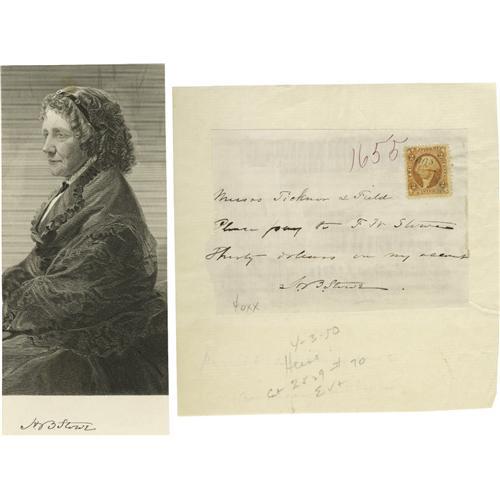 H B Stowe
1655
Messrs Ticknor & Field
Please pay to F W Stowe
Thirty dollars on my account
H B Stowe.
4-3-50